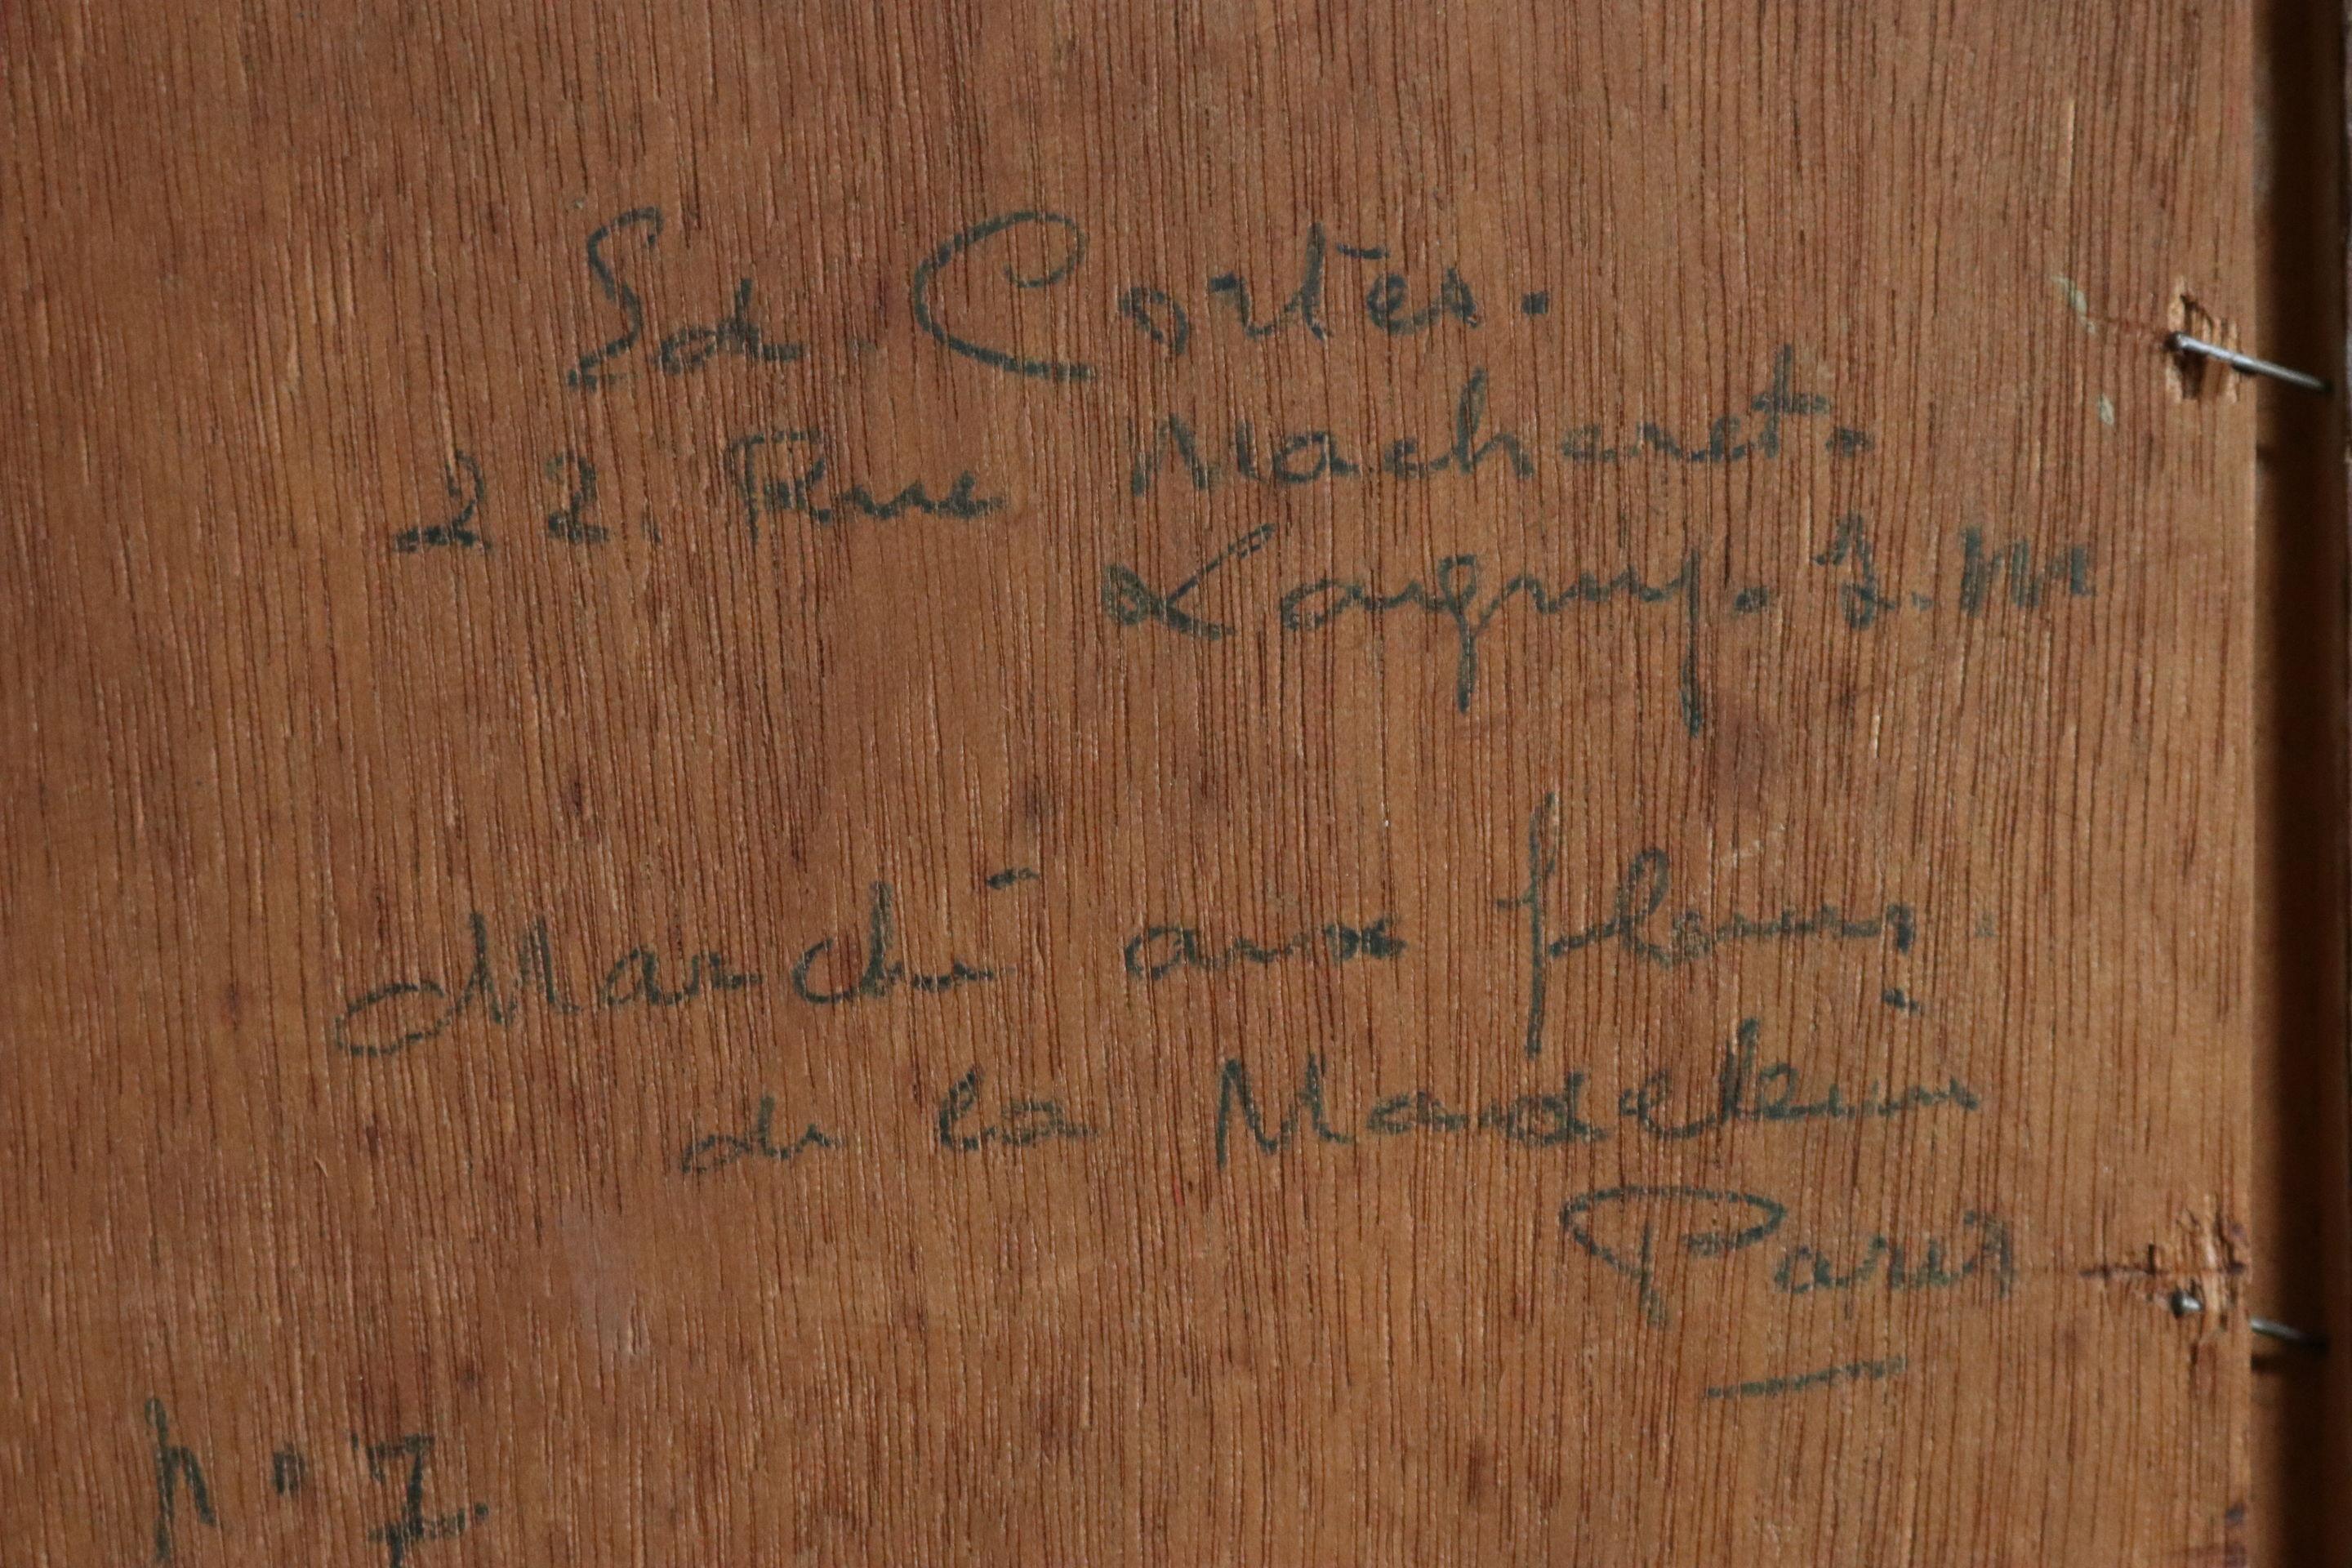 Ed. Cortès.
22. Rue Macheret.
Lagny. S. M
Marché aux fleurs.
de la Madeleine
Paris
N° 7